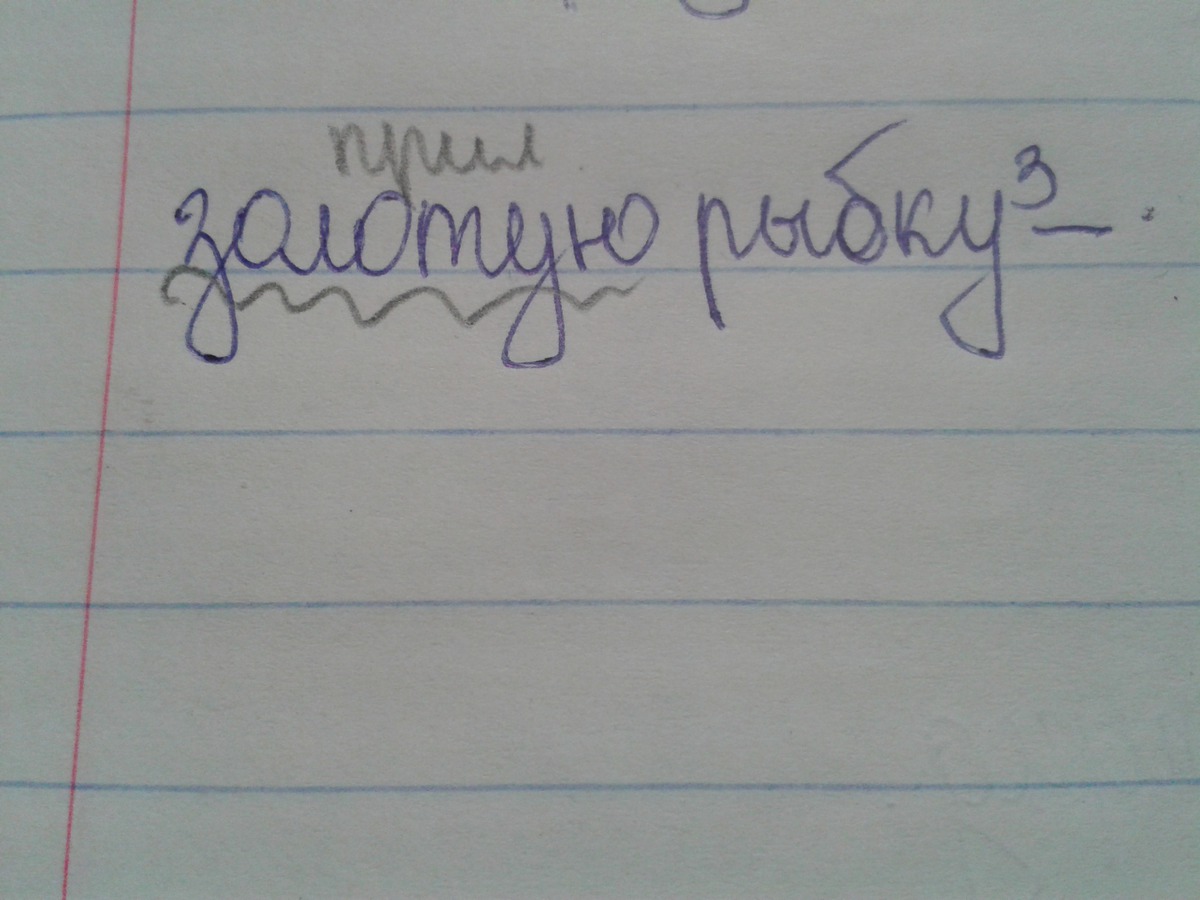 прил
золотую рыбку³ –.